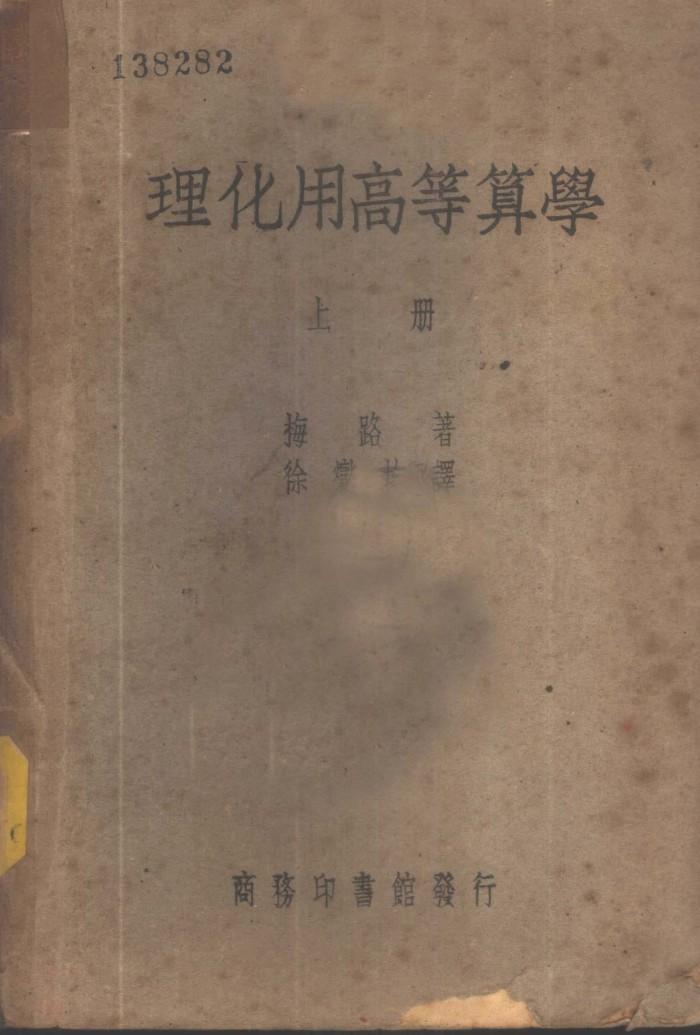 138282
理化用高等算學
上 册
梅 路 著
徐 燮 譯
商務印書館發行